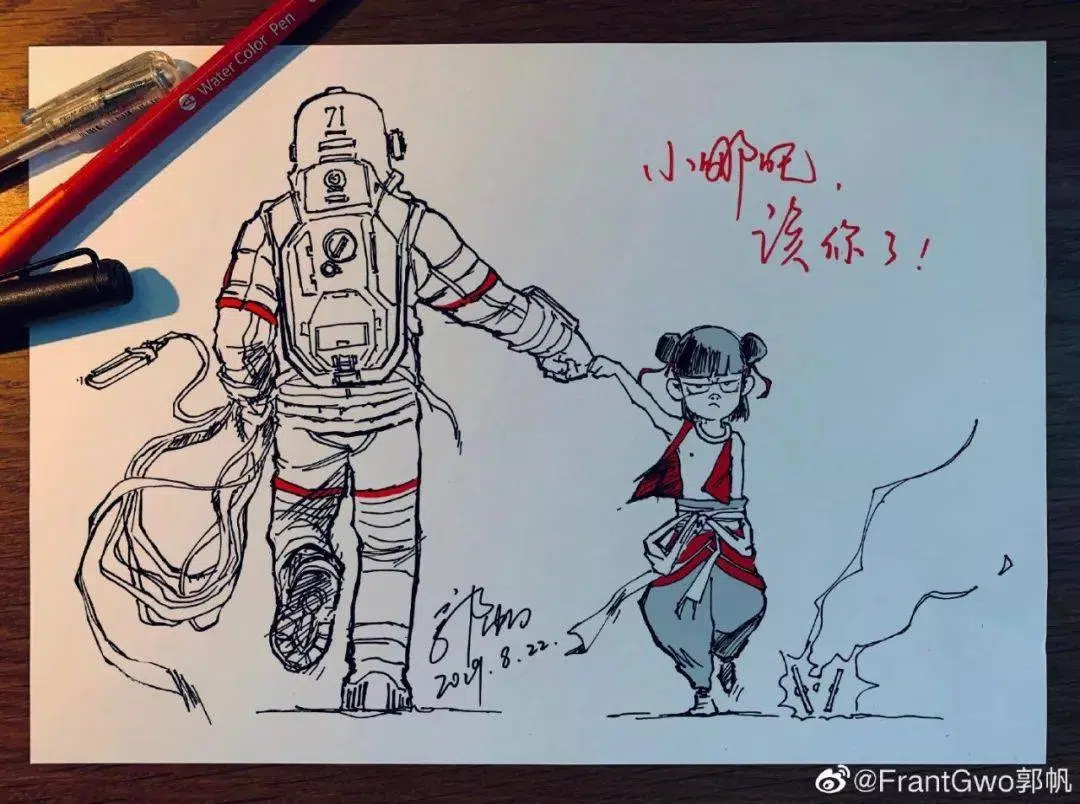 Water Color Pen
71
小哪吒,
该你了!
郭帆
2019.8.22.
@FrantGwo郭帆